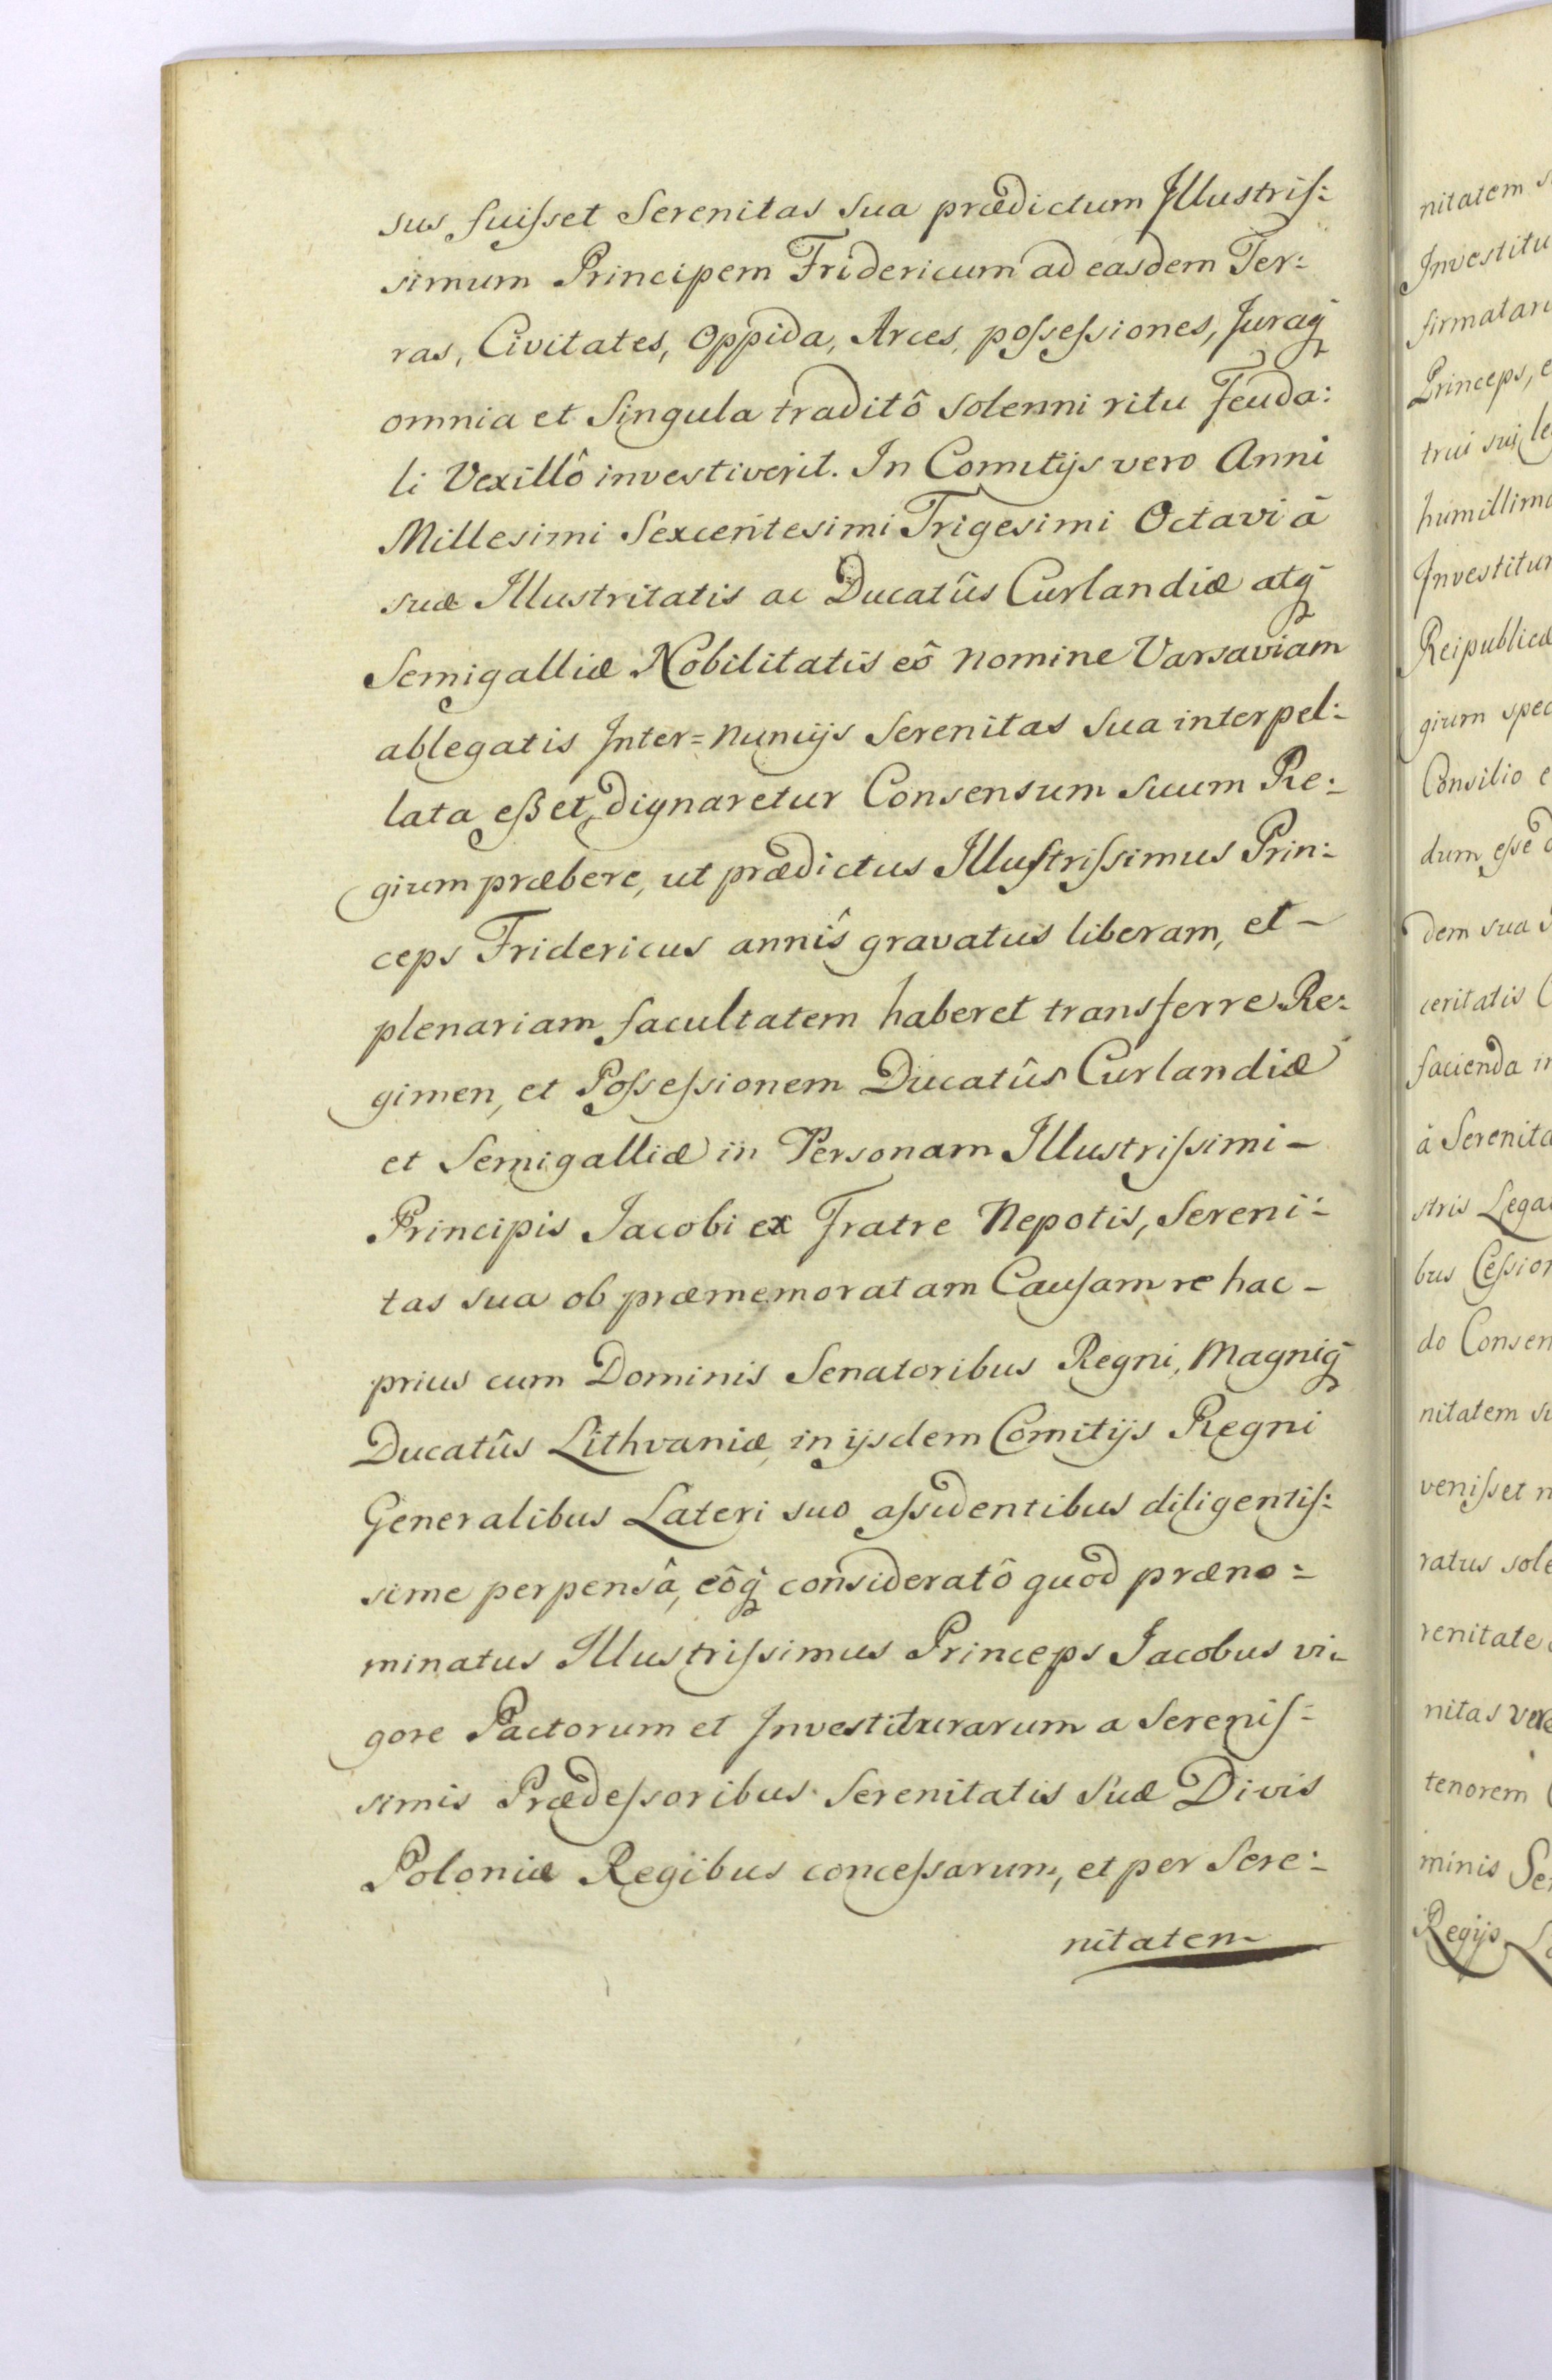 sus fuisset Serenitas Sua prædictum Illustris:
simum Principem Fridericum ad easdem Ter:
ras, Civitates, Oppida, Arces, possessiones, Juraq̃
omnia et Singula traditô solenni ritu Feuda:
li Vexillô investiverit. In Comitijs vero Anni
Millesimi Sexcentesimi Trigesimi Octavi â
suæ Illustritatis ac Ducatûs Curlandiæ atq̃
Semigalliæ Nobilitatis eô nomine Varsaviam
ablegatis Inter=nuncijs Serenitas Sua interpel:
lata eßet, dignaretur Consensum suum Re:
gium præbere, ut prædictus Illustrissimus Prin:
ceps Fridericus annîs gravatus liberam, et -
plenariam facultatem haberet transferre Re:
gimen, et Possessionem Ducatûs Curlandiæ
et Semigalliæ in Personam Illustrissimi -
Principis Jacobi ex Fratre Nepotis, Sereni:
tas sua ob præmemoratam Causam re hac -
prius cum Dominis Senatoribus Regni, Magniq̃
Ducatûs Lithvaniæ, in ijsdem Comitijs Regni
Generalibus Lateri suo assidentibus diligentis:
sime perpensâ, eôq̃ consideratô quod præno=
minatus Illustrissimus Princeps Jacobus vi:
gore Pactorum et Investiturarum a Serenis:
simis Prædessoribus Serenitatis Suæ Divis
Poloniæ Regibus concessarum, et per Sere:
nitatem
nitatem
Investitu
firmatam
Princeps, e
trui sui le
humillima
Investitur
Reipublicæ
gium spec
Consilio e
dum esse
dem sua
ceritatis
facienda in
â Serenita
stris Legat
bus Cession
do Consen
nitatem su
venisset n
ratus sole
renitate
nitas vero
tenorem
minis Se
Regijs